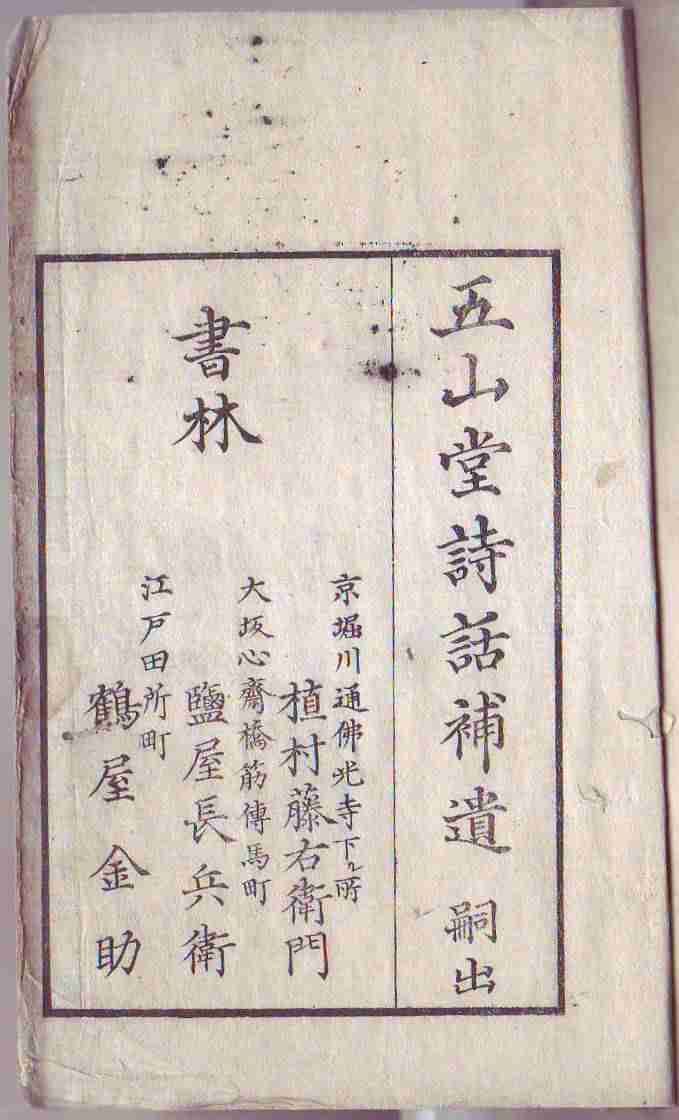 五山堂詩話補遺 嗣出
書林
京堀川通佛光寺下ル所
植村藤右衛門
大坂心齋橋筋傳馬町
鹽屋長兵衛
江戸田所町
鶴屋金助